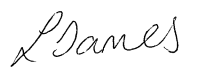 L James